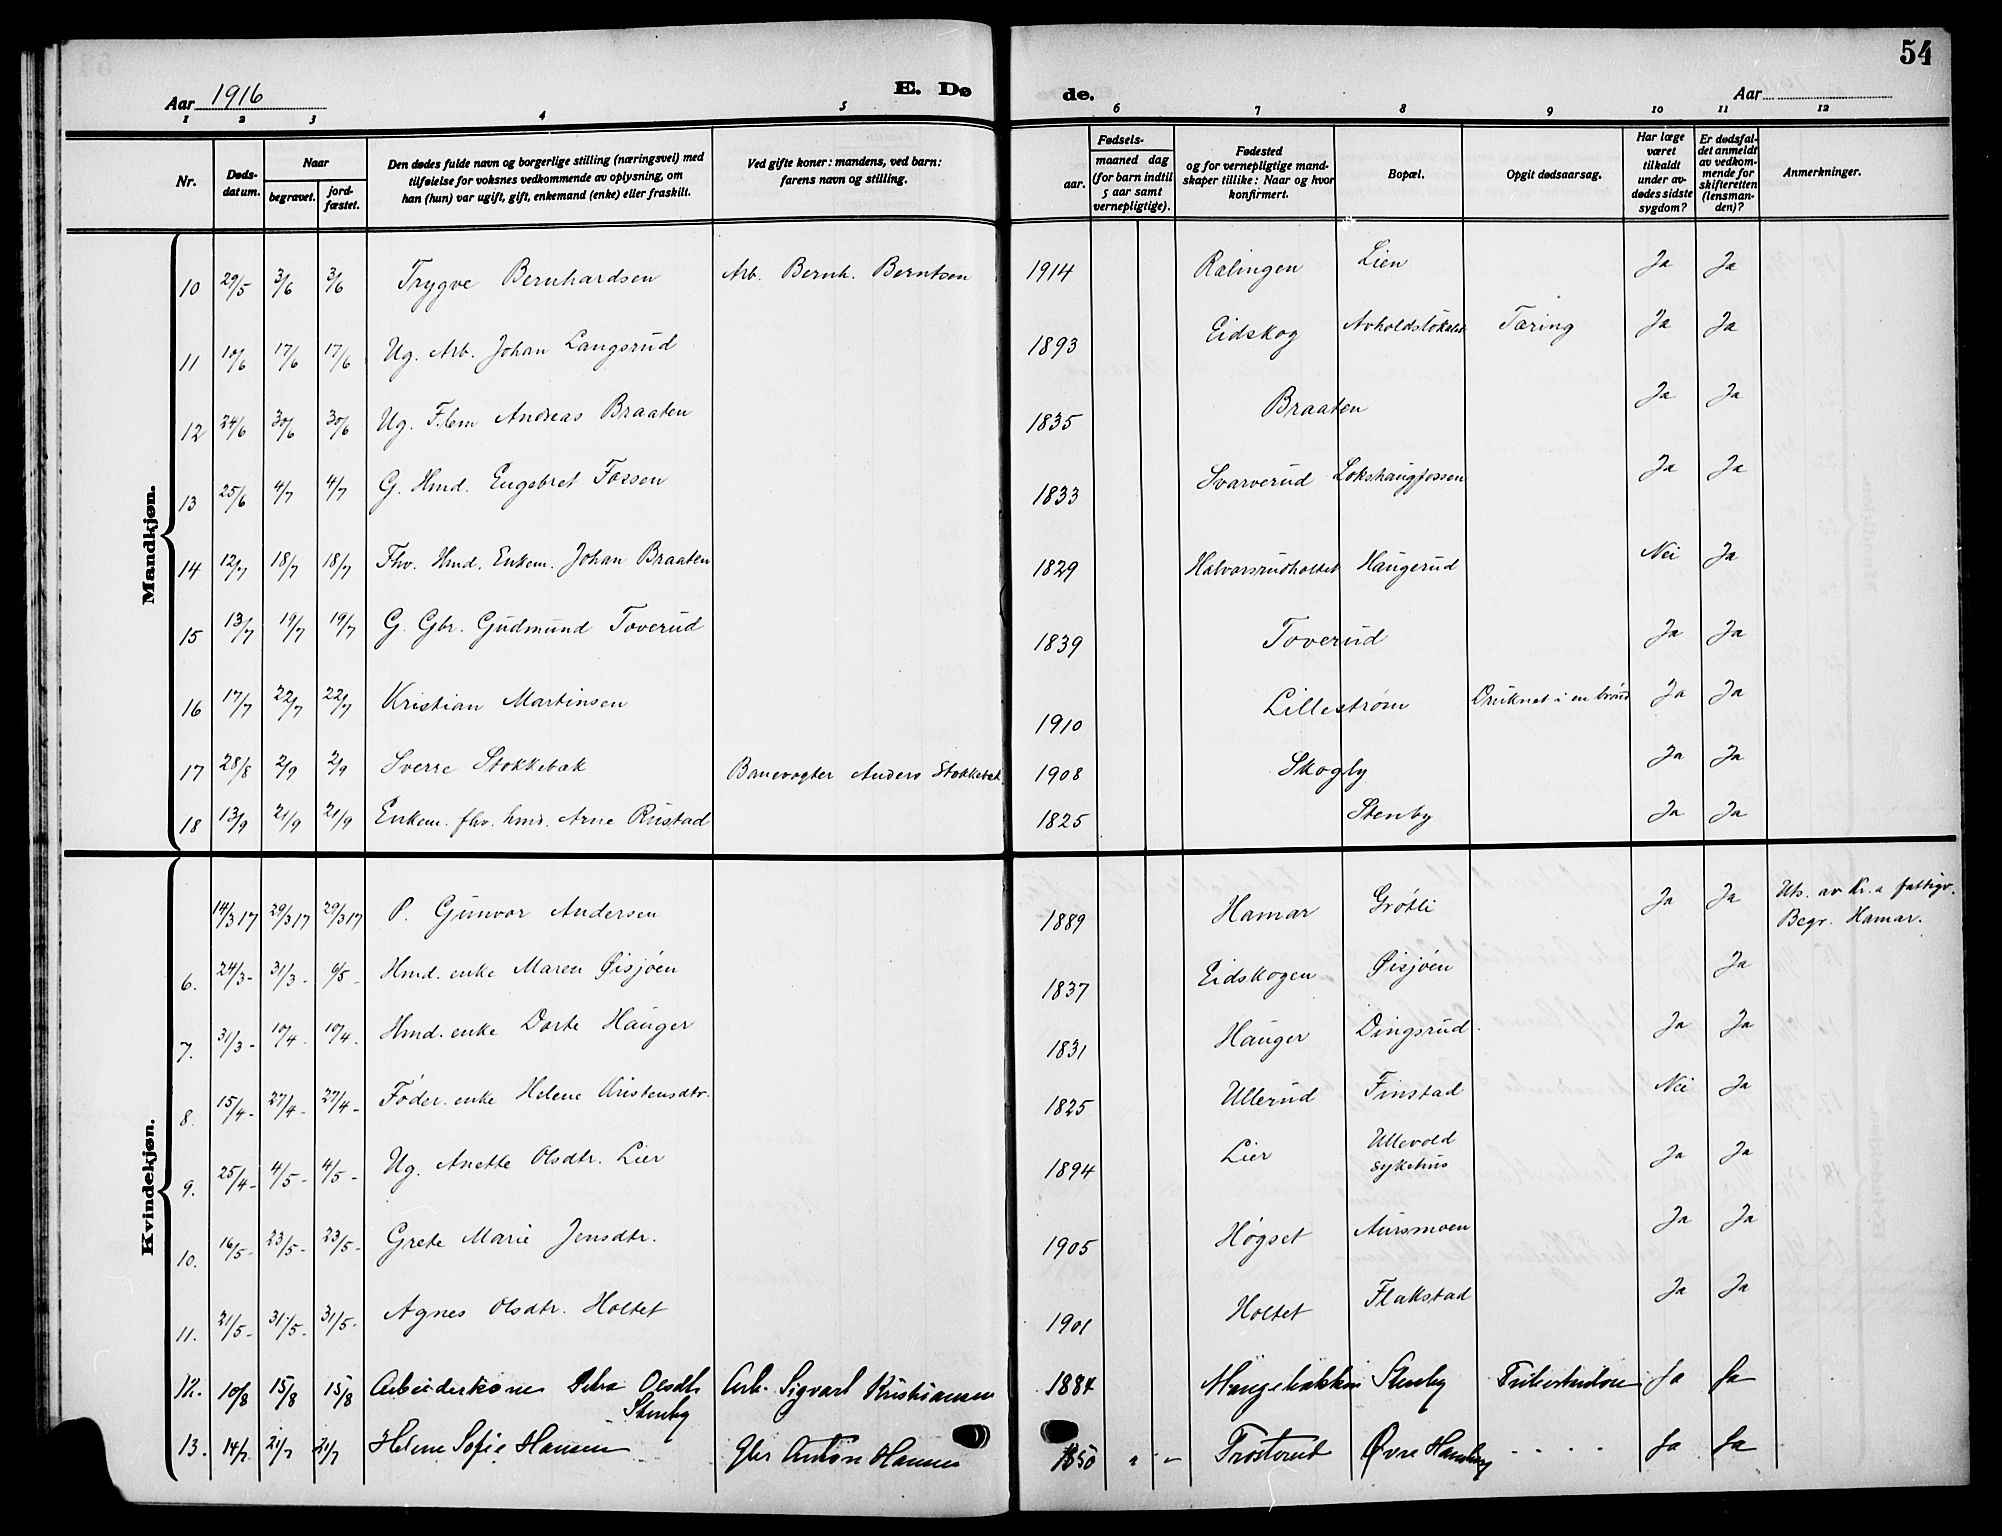 54
Aar 1916 E. Døde. Aar
1 2 3 4 5 6 7 8 9 10 11 12
Nr.
Døds-
datum.
Naar
begravet.
jord-
fæstet.
Den dødes fulde navn og borgerlige stilling (næringsvei) med
tilføielse for voksnes vedkommende av oplysning, om
han (hun) var ugift, gift, enkemand (enke) eller fraskilt.
Ved gifte koner: mandens, ved barn:
farens navn og stilling.
Fødsels-
aar.
maaned dag
(for barn indtil
5 aar samt
vernepligtige).
Fødested
og for vernepligtige mand-
skaper tillike: Naar og hvor
konfirmert.
Bopæl.
Opgit dødsaarsag.
Har læge
været
tilkaldt
under av-
dødes sidste
sygdom?
Er dødsfal-
det anmeldt
av vedkom-
mende for
skifteretten
(lensman-
den)?
Anmerkninger.
Mandkjøn.
10 29/5 3/6 3/6 Trygve Bernhardsen Arb. Bernh. Berntsen 1914 Rælingen Lien Ja Ja
11 10/6 17/6 17/6 Ug. Arb. Johan Langsrud 1893 Eidskog Avholdslokalet Tæring Ja Ja
12 24/6 30/6 30/6 Ug. Flem Andreas Braaten 1835 Braaten Ja Ja
13 25/6 4/7 4/7 G. Hmd. Engebret Fossen 1833 Svarverud Lokshaugfossen Ja Ja
14 12/7 18/7 18/7 Fhv. Hmd. Enkem. Johan Braaten 1829 Halvorsrudholtet Haugerud Nei Ja
15 13/7 19/7 19/7 G. Gbr. Gudmund Toverud 1839 Toverud Ja Ja
16 17/7 22/7 22/7 Kristian Martinsen 1910 Lillestrøm Druknet i en brønd Ja Ja
17 28/8 2/9 2/9 Sverre Stokkebæk Banevogter Anders Stokkebæk 1908 Skogly Ja Ja
18 13/9 21/9 21/9 Enkem. fhv. hmd. Arne Rustad 1825 Stenby Ja Ja
Kvindekjøn.
14/3 17 29/3 17 29/3 17 P. Gunvor Andersen 1889 Hamar Grøtli Ja Ja Uts. av Kr.a fattigv.
Begr. Hamar.
6. 24/3 - 31/3 - 9/5 - Hmd. enke Maren Øisjøen 1837 Eidskogen Øisjøen Ja
7. 31/3 - 10/4 - 10/4 - Hmd. enke Dorte Hauger 1831 Hauger Dingsrud Ja Ja
8. 15/4 - 27/4 - 27/4 - Føder. enke Helene Kristensdtr. 1825 Ullerud Finstad Nei Ja
9. 25/4 - 4/5 - 4/5 - Ug. Anette Olsdtr. Lier 1894 Lier Ullevold
sykehus Ja Ja
10. 16/5 - 23/5 - 23/5 - Grete Marie Jensdtr. 1905 Høgset Aursmoen Ja Ja
11. 21/5 - 31/5 - 31/5 - Agnes Olsdtr. Holtet 1901 Holtet Flakstad Ja Ja
12. 10/8 15/8 15/8 Arbeiderkone Petra Olsdtr Arb. Sigvart Kristiansen 1884 Stenby Ja Ja
Stenby
13. 14/7 21/7 21/7 Helene Sofie Hansen Gbr Anton Hansen 1850 " " Trosterud Øvre - - - - Ja Ja